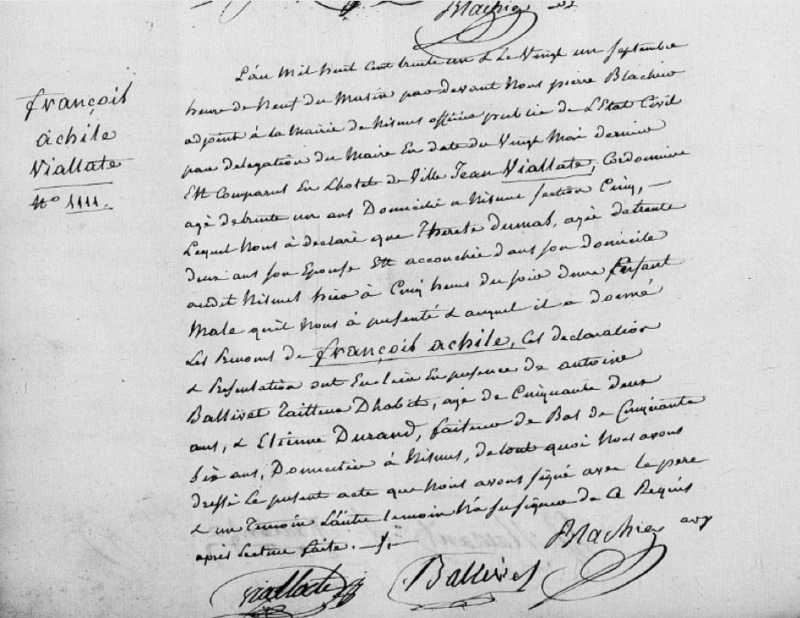 Blachier
françois
achile
Viallate
N° 1111.
L'an Mil huit Cent trente un & Le Vingt un Septembre
heure de Neuf du Matin par devant Nous pierre Blachier
adjoint à la Mairie de Nismes officier public de L'Etat Civil
par delegation du Maire En date du Vingt Mai dernier
Est Comparut En Lhotel de Ville Jean Viallate, Cordonnier
agé de trente un ans Domicilié a Nismes Section Cinq, —
Lequel Nous à declaré que Therese Dumas, agée de trente
deux ans son Epouse Est accouchée dans son domicile
audit Nismes hier à Cinq heures du soir d'une Enfant
Male qu'il Nous à presenté & auquel il a donné
Les Prenoms de françois achile, Ces declaration
& Presentation ont Eu lieu En presence de antoine
Ballivet Tailleur D'habit, agé de Cinquante deux
ans, & Etienne Durand, faiseur de Bas de Cinquante
Six ans, Domiciliés à Nismes, de tout quoi Nous avons
dressé Le present acte que Nous avons signé avec le pere
& un Temoin L'autre temoin N'a su signer de ce Requis
après Lecture faite. —
Blachier
viallate
Ballivet